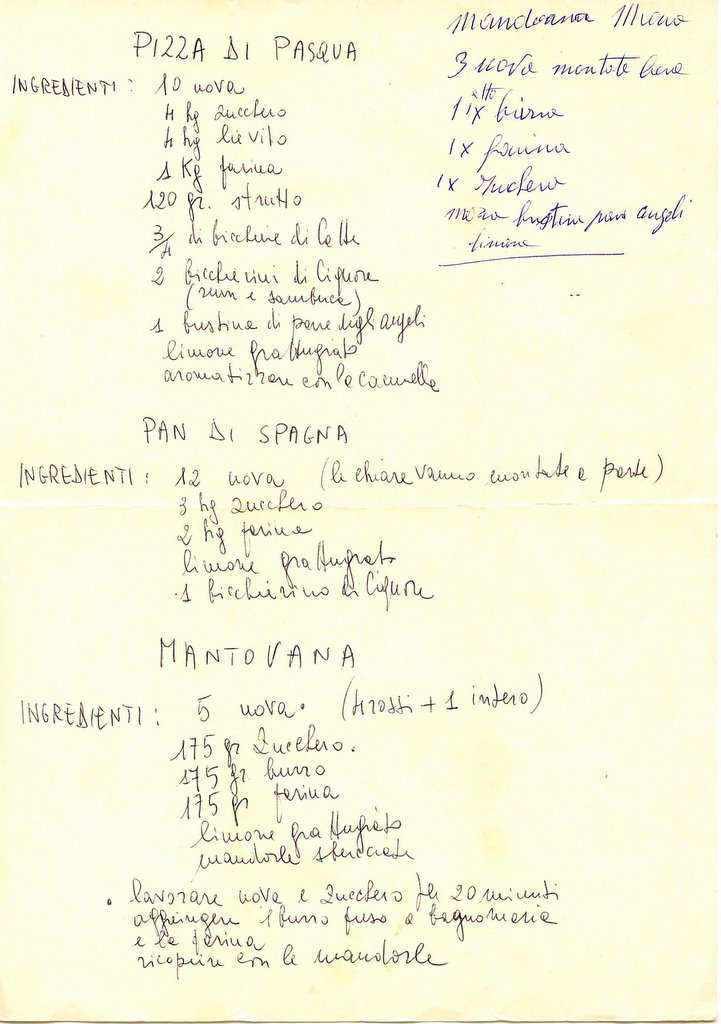 PIZZA DI PASQUA
INGREDIENTI: 10 uova
4 hg zucchero
4 hg lievito
1 Kg farina
120 gr. strutto
3/4 di bicchiere di latte
2 bicchierini di liquore
(rum e sambuca)
1 bustina di pane degli angeli
limone grattugiato
aromatizzare con la cannella
3 uova montate
1 etto
1 x farina
1 x zucchero
bustina pane angeli
limone
PAN DI SPAGNA
INGREDIENTI: 12 uova (le chiare vanno montate a parte)
3 hg zucchero
2 hg farina
limone grattugiato
1 bicchierino di liquore
MANTOVANA
INGREDIENTI: 5 uova. (4 rossi + 1 intero)
175 gr zucchero.
175 gr burro
175 gr farina
limone grattugiato
mandorle sbucciate
. lavorare uova e zucchero per 20 minuti
aggiungere il burro fuso a bagnomaria
e la farina
ricoprire con le mandorle